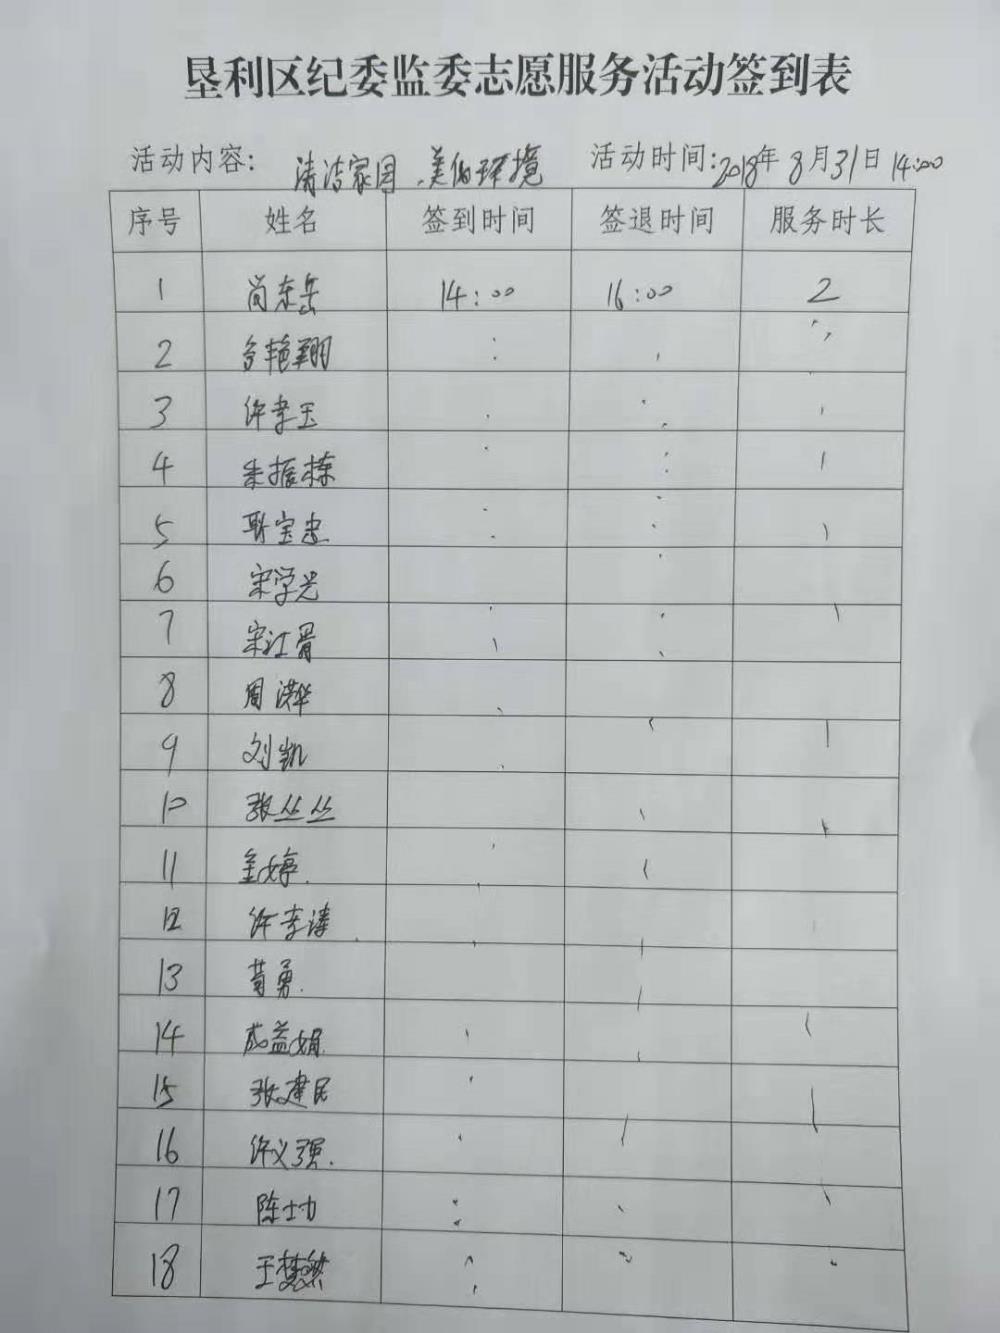 垦利区纪委监委志愿服务活动签到表
活动内容: 清洁家园、美化环境 活动时间:2018年8月31日14:00
序号 姓名 签到时间 签退时间 服务时长
1 尚东岳 14:00 16:00 2
2 艳翔
3 许孝玉
4 朱振栋
5 耿宝忠
6 宋学光
7 宋江
8 周洪华
9 刘凯
10 张丛丛
11 婷
12 许李涛
13 勇
14 成益娟
15 张建民
16 许义强
17 陈士力
18 王梦然